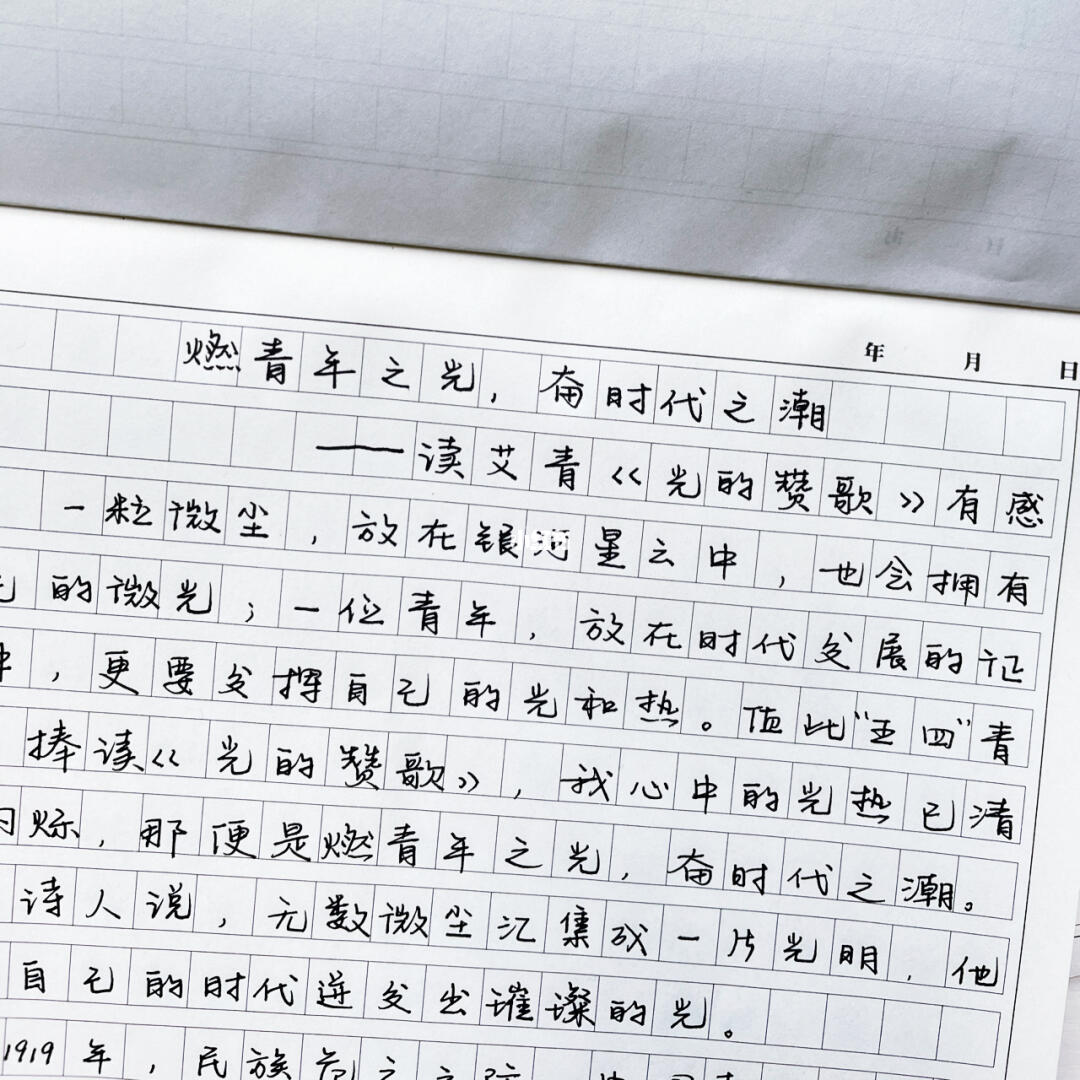 年 月 日
燃青年之光，奋时代之潮
——读艾青《光的赞歌》有感
一粒微尘，放在银河星云中，也会拥有
的微光；一位青年，放在时代发展的证
，更要发挥自己的光和热。值此“五四”青
捧读《光的赞歌》，我心中的光热已清
烁，那便是燃青年之光，奋时代之潮。
诗人说，无数微尘汇集成一片光明，他
自己的时代迸发出璀璨的光。
1919年，民族危